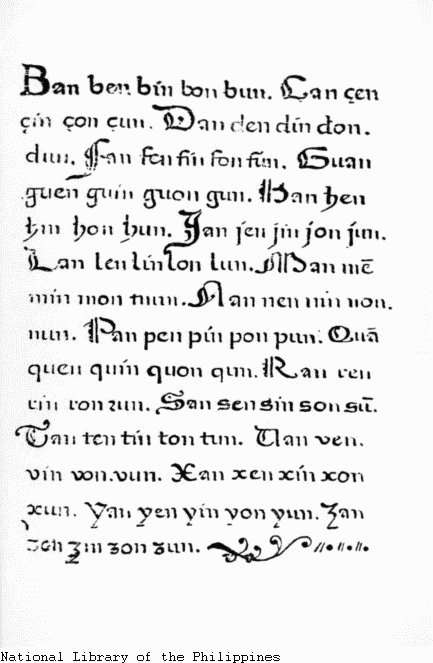 Ban ben bin bon bun. Çan çen
çin çon çun. Dan den din don.
dun. Fan fen fin fon fũn. Guan
guen guin guon gun. Han hen
hin hon hun. Jan jen jin jon jun.
Lan len lin lon lun. Man mẽ
min mon mun. Nan nen nin non.
nun. Pan pen pin pon pun. Quã
quen quin quon qun. Ran ren
rin ron run. San sen sin son sũ.
Tan ten tin ton tun. Uan ven.
vin von. vun. Xan xen xin xon
xun. Yan yen yin yon yun. Zan
zen zin zon zun.
National Library of the Philippines